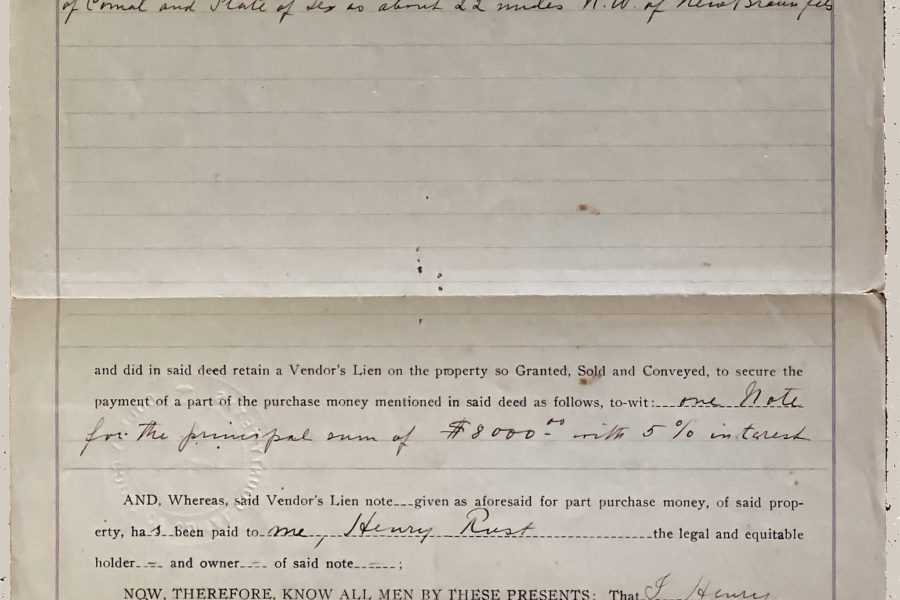 of Comal and State of Texas about 22 miles N.W. of New Braunfels
and did in said deed retain a Vendor's Lien on the property so Granted, Sold and Conveyed, to secure the
payment of a part of the purchase money mentioned in said deed as follows, to-wit: one Note
for the principal sum of $8000.00 with 5% interest
AND, Whereas, said Vendor's Lien note given as aforesaid for part purchase money, of said prop-
erty, has been paid to me, Henry Rust the legal and equitable
holder and owner of said note ;
NOW, THEREFORE, KNOW ALL MEN BY THESE PRESENTS: That I Henry